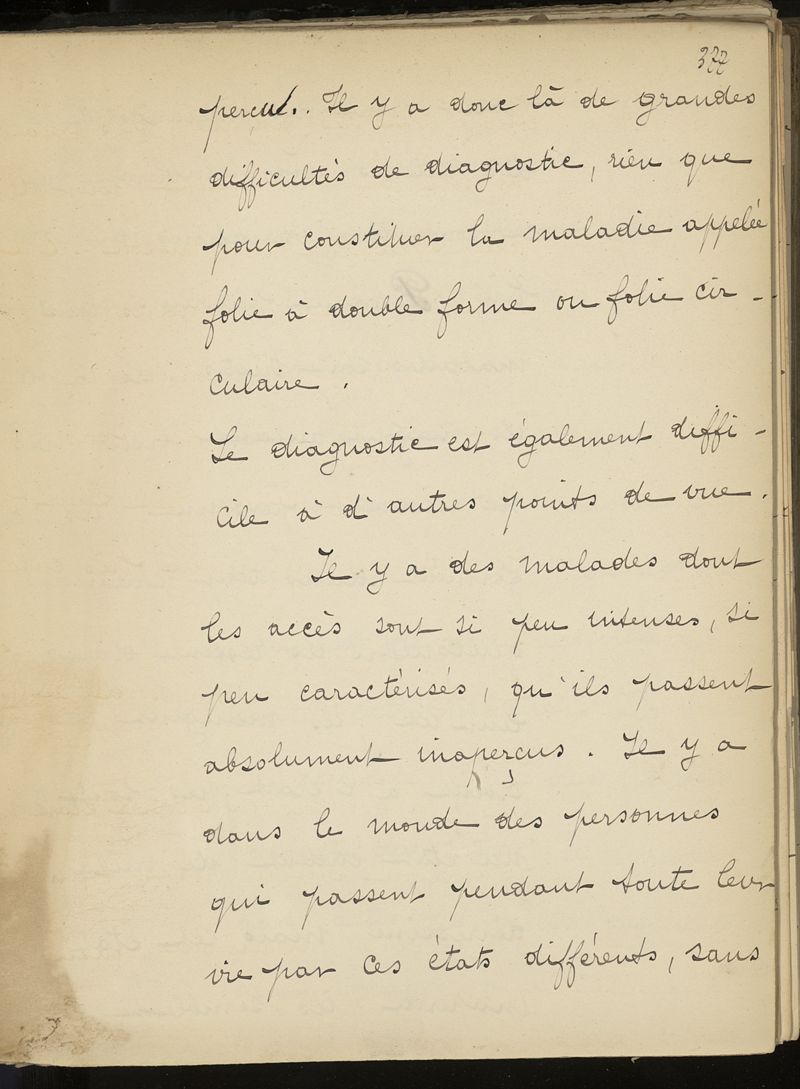 377
perçu. Il y a donc là de grandes
difficultés de diagnostic, rien que
pour constituer la maladie appelée
folie à double forme ou folie cir-
culaire.
Le diagnostic est également diffi-
cile à d'autres points de vue.
Il y a des malades dont
les accès sont si peu intenses, si
peu caractérisés, qu'ils passent
absolument inaperçus. Il y a
dans le monde des personnes
qui passent pendant toute leur
vie par ces états différents, sans